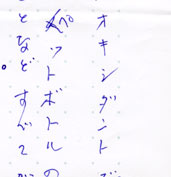 オキシダント
ペットボトルの
となどすべて